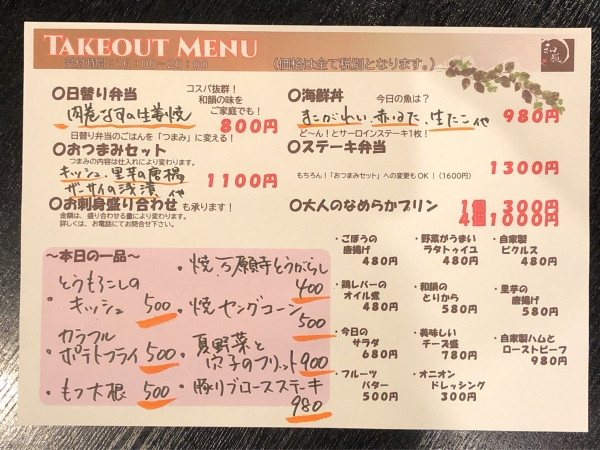 TAKEOUT MENU
受付時間:16:00~20:00
(価格は全て税別となります。)
和韻
〇日替り弁当
コスパ抜群!
和韻の味を
ご家庭でも!
肉巻なすの生姜焼
800円
日替り弁当のごはんを「つまみ」に変える!
〇おつまみセット
つまみの内容は仕入れにより変わります。
キッシュ、里芋の唐揚
ザーサイの浅漬 や
1100円
〇お刺身盛り合わせも承ります!
金額は、盛り合わせる量により変わります。
詳しくは、お電話にてお問合せ下さい。
〇海鮮丼
今日の魚は?
まこがれい、赤いか、生たこ や
980円
ど~ん!とサーロインステーキ1枚!
〇ステーキ弁当
1300円
もちろん!「おつまみセット」への変更もOK!(1600円)
〇大人のなめらかプリン
1個 300円
4個1000円
~本日の一品~
とうもろこしの
・キッシュ 500
カラフル
・ポテトフライ 500
・もつ大根 500
・焼 万願寺とうがらし
400
・焼 ヤングコーン
500
・夏野菜と
穴子のフリット 900
・豚リブロースステーキ
980
・ごぼうの
唐揚げ
480円
・野菜がうまい
ラタトゥイユ
480円
・自家製
ピクルス
480円
・鶏レバーの
オイル煮
480円
・和韻の
とりから
580円
・里芋の
唐揚げ
580円
・今日の
サラダ
680円
・美味しい
チーズ盛
780円
・自家製ハムと
ローストビーフ
980円
・フルーツ
バター
500円
・オニオン
ドレッシング
300円